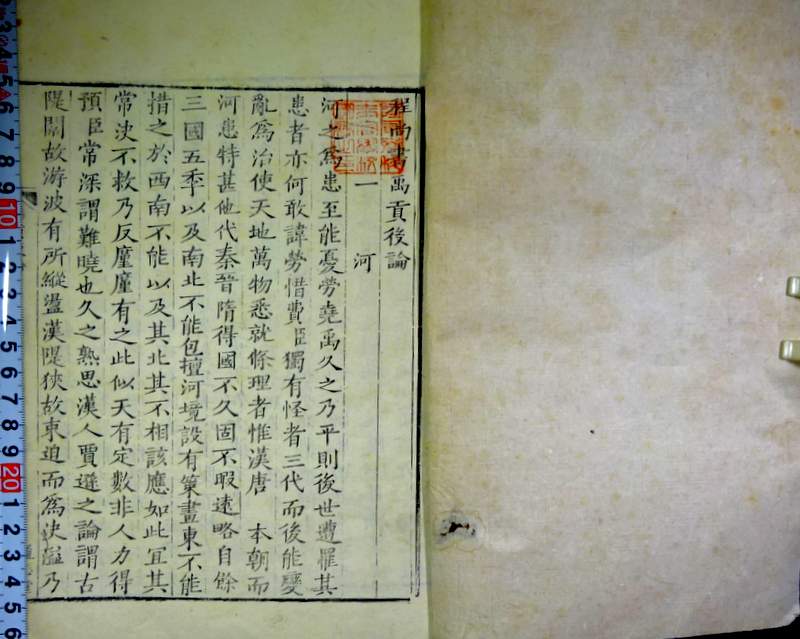 程尚書禹貢後論
一 河
河之爲患至能憂勞堯禹久之乃平則後世遭罹其
患者亦何敢諱勞惜費臣獨有怪者三代而後能變
亂爲治使天地萬物悉就條理者惟漢唐 本朝而
河患特甚他代秦晉隋得國不久固不暇遠略自餘
三國五季以及南北不能包擅河境設有策畫東不能
措之於西南不能以及其北其不相該應如此宜其
常決不救乃反廑廑有之此似天有定數非人力得
預臣常深謂難曉也久之熟思漢人賈之論謂古
隄闊故游波有所縱盪漢隄狹故東迫而爲決溢乃
4 5 6 7 8 9 10 1 2 3 4 5 6 7 8 9 20 1 2 3 4 5 6